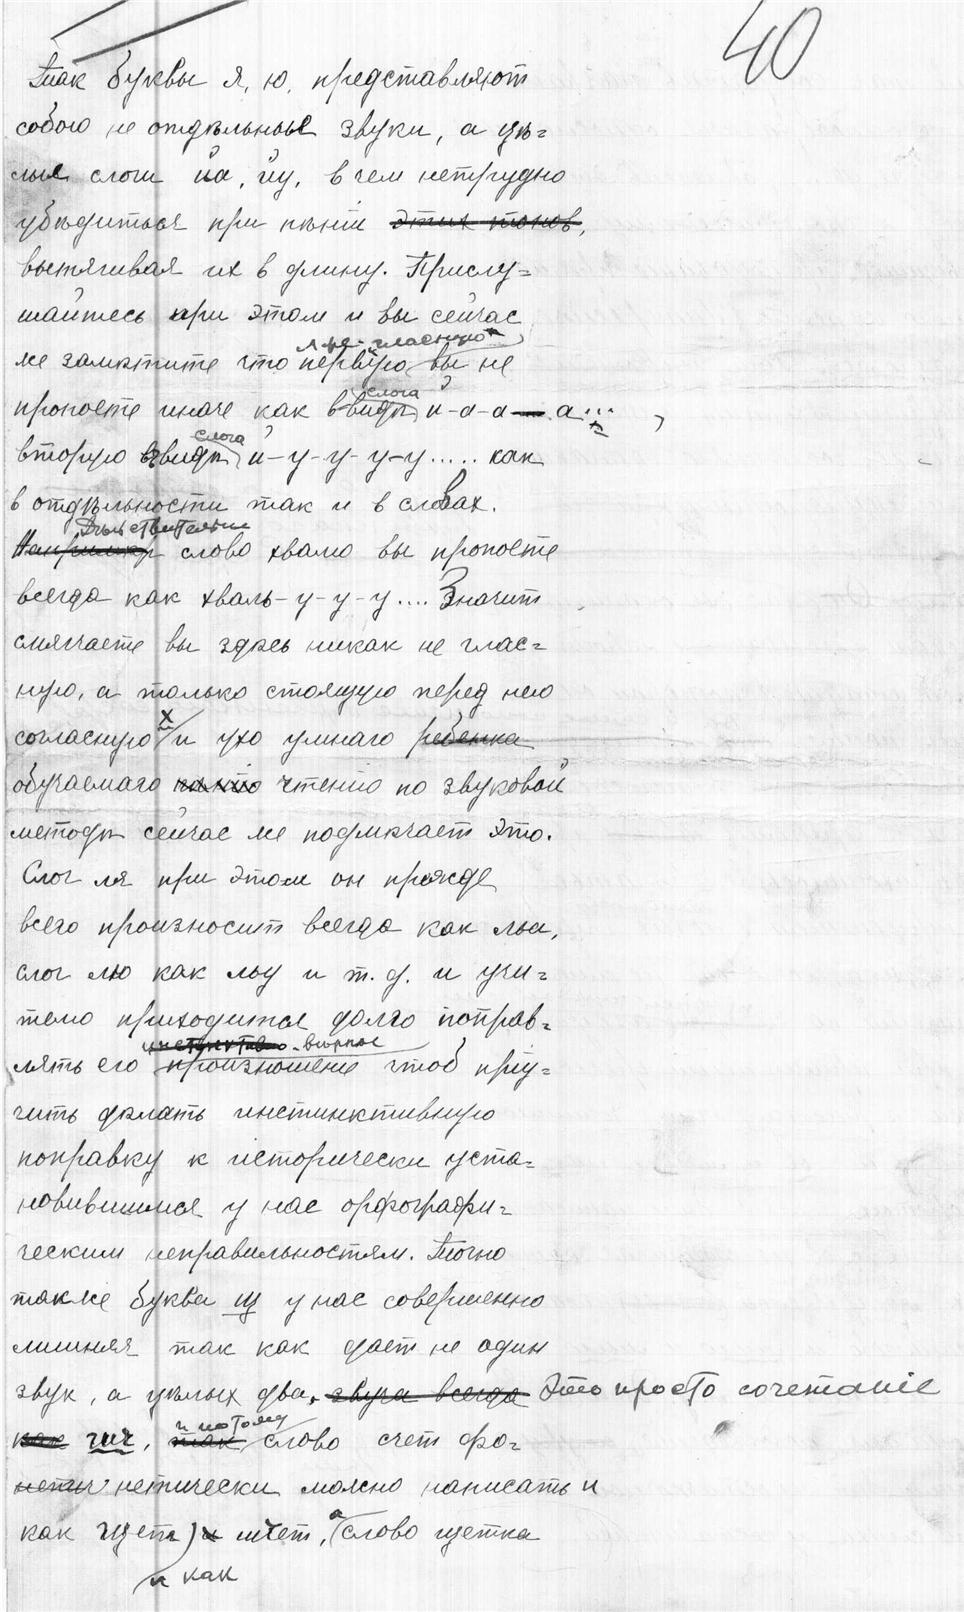 40
Так буквы я, ю, представляют
собою не отдѣльные звуки, а цѣ=
лые слоги йа, йу, в чем нетрудно
убѣдиться при пѣніи этих тонов,
вытягивая их в длину. Прислу=
шайтесь при этом и вы сейчас
гласную
же замѣтите что первую вы не
слога
пропоете иначе как в видѣ й-а-а-а...
слога
вторую в видѣ й-у-у-у-у..... как
в отдѣльности так и в словах.
Дѣйствительно
Например слово хвалю вы пропоете
всегда как хваль-у-у-у.... Значит
смягчаете вы здѣсь никак не глас=
ную, а только стоящую перед нею
согласную и ухо умнаго ребенка
обучаемаго чтенію по звуковой
методѣ сейчас же подмѣчает это.
Слог ля при этом он прежде
всего произносит всегда как льа,
слог лю как льу и т. д. и учи=
телю приходится долго поправ=
инстинктивно-вѣрное
лять его произношеніе чтоб пріу=
чить дѣлать инстинктивную
поправку к исторически уста=
новившимся у нас орфографи=
ческим неправильностям. Точно
также буква щ у нас совершенно
лишняя так как дает не один
звук, а цѣлых два. звука всегда Это просто сочетаніе
и потому
как шч, так слово счет фо=
нетич нетически можно написать и
как щет и шчет, а слово щетка
и как